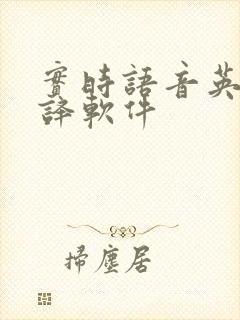 實時語音英
譯軟件
掃塵居